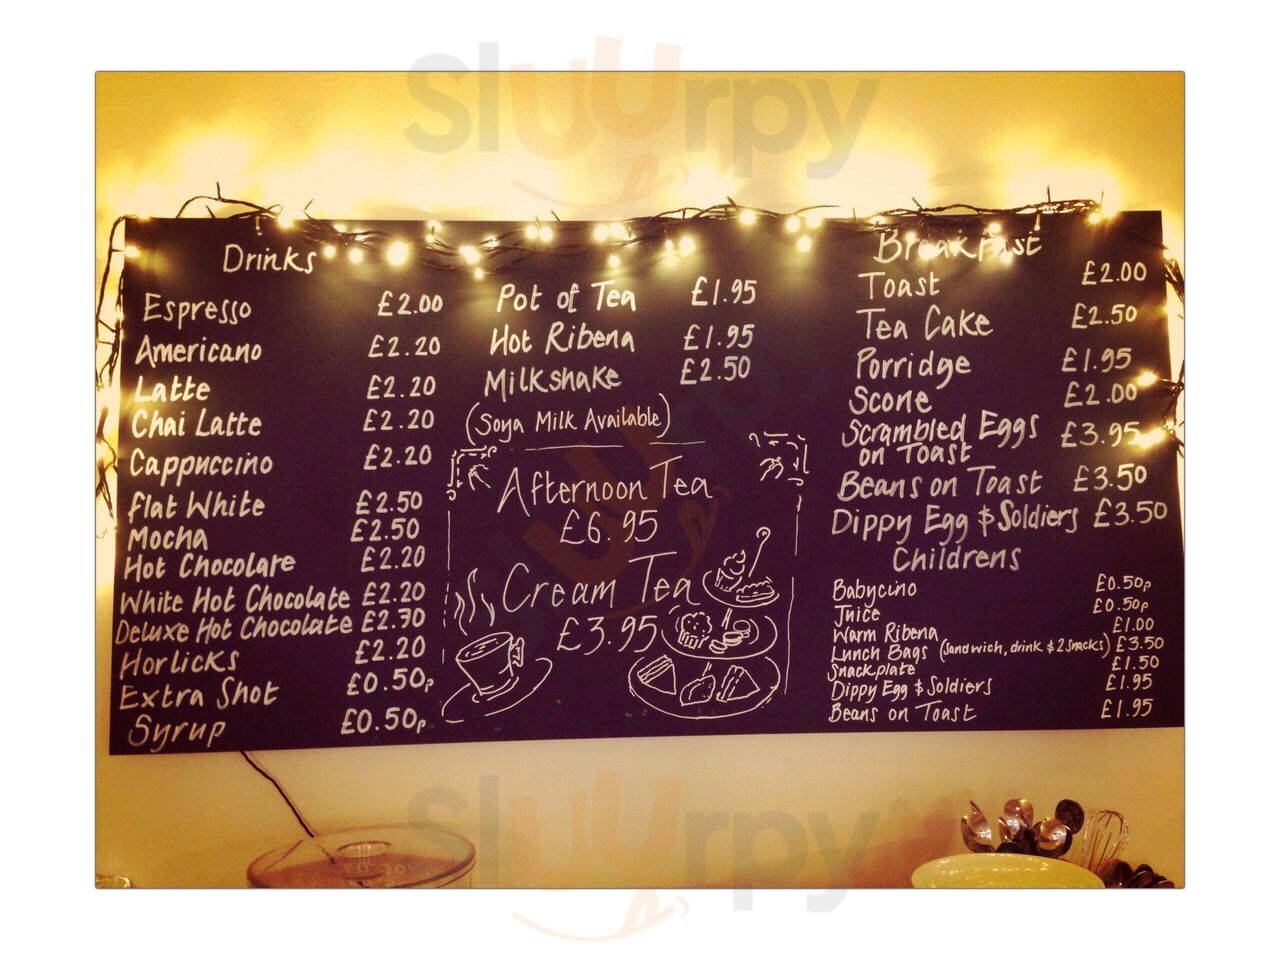 Sluurpy
Drinks
Espresso £2.00
Americano £2.20
Latte £2.20
Chai Latte £2.20
Cappuccino £2.20
flat White £2.50
Mocha £2.50
Hot Chocolate £2.20
White Hot Chocolate £2.20
Deluxe Hot Chocolate £2.70
Horlicks £2.20
Extra Shot £0.50p
Syrup £0.50p
Pot of Tea £1.95
Hot Ribena £1.95
Milkshake £2.50
(Soya Milk Available)
Afternoon Tea
£6.95
Cream Tea
£3.95
Breakfast
Toast £2.00
Tea Cake £2.50
Porridge £1.95
Scone £2.00
Scrambled Eggs £3.95
on Toast
Beans on Toast £3.50
Dippy Egg & Soldiers £3.50
Childrens
Babycino £0.50p
Juice £0.50p
Warm Ribena £1.00
Lunch Bags (Sandwich, drink & 2 snacks) £3.50
Snackplate £1.50
Dippy Egg & Soldiers £1.95
Beans on Toast £1.95
Sluurpy